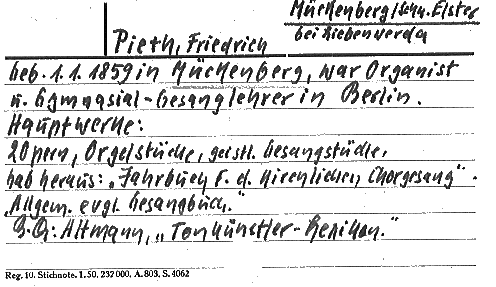 Mückenberg/Schw. Elster
bei Liebenwerda
Pieth, Friedrich
Geb. 1.1.1859 in Mückenberg, war Organist
u. Gymnasial-Gesanglehrer in Berlin.
Hauptwerke:
2 Opern, Orgelstücke, geistl. Gesangstücke,
hab heraus: „Jahrbuch f. d. kirchlichen Chorgesang".
„Allgem. evgl. Gesangbuch."
B.Q: Altmann, „Tonkünstler-Lexikon."
Reg. 10. Stichnote. 1. 50. 237000. A. 803. S. 4062